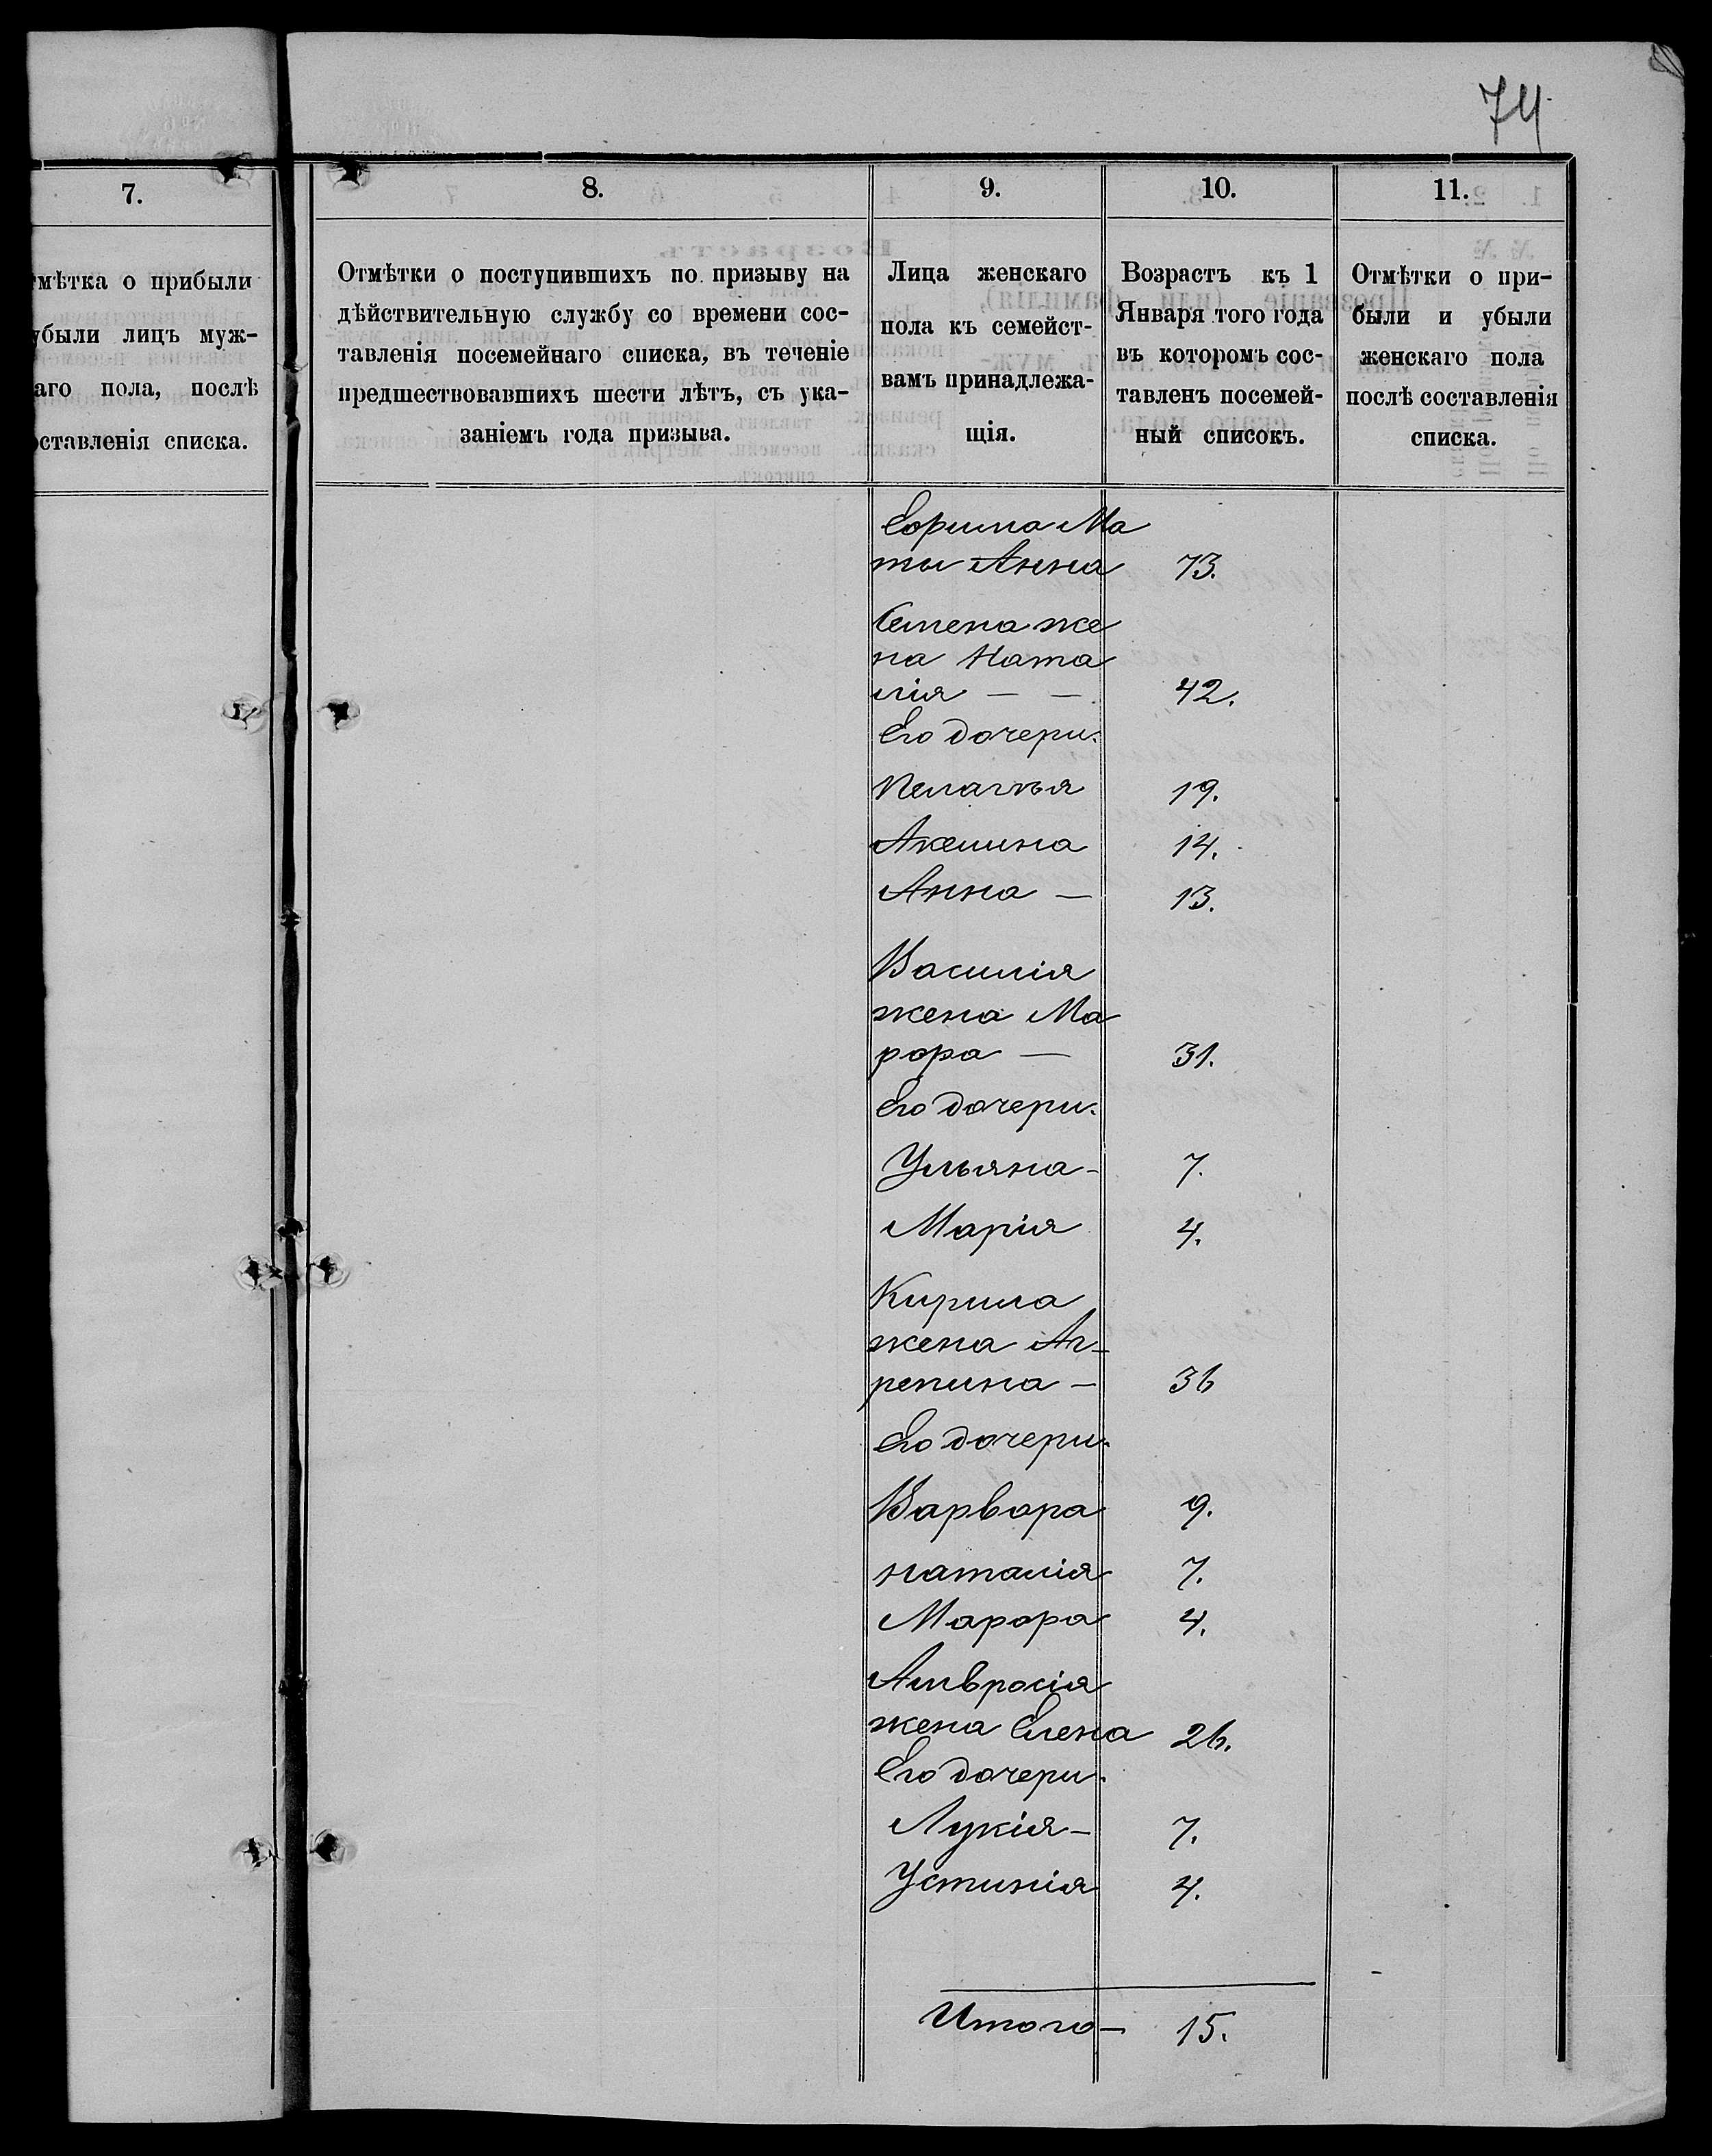 74
7.
тмѣтка о прибыли
убыли лицъ муж-
аго пола, послѣ
оставленія списка.
8.
Отмѣтки о поступившихъ по призыву на
дѣйствительную службу со времени сос-
тавленія посемейнаго списка, въ теченіе
предшествовавшихъ шести лѣтъ, съ ука-
заніемъ года призыва.
9.
Лица женскаго
пола къ семейст-
вамъ принадлежа-
щія.
10.
Возрастъ къ 1
Января того года
въ которомъ сос-
тавленъ посемей-
ный списокъ.
11.
Отмѣтки о при-
были и убыли
женскаго пола
послѣ составленія
списка.
Ма
ть Анна 73.
Семена же
на Ната
лія — — 42.
Его дочери.
Пелагѣя 19.
Акилина 14.
Анна — 13.
Василія
жена Ма
рфа — 31.
Его дочери.
Ульяна - 7.
Марія 4.
Кирила
жена Аг-
репина — 36
Его дочери.
Варвара 9.
Наталія 7.
Марфа 4.
Амвросія
жена Елена 26.
Его дочери.
Лукія - 7.
Устинія 4.
Итого — 15.